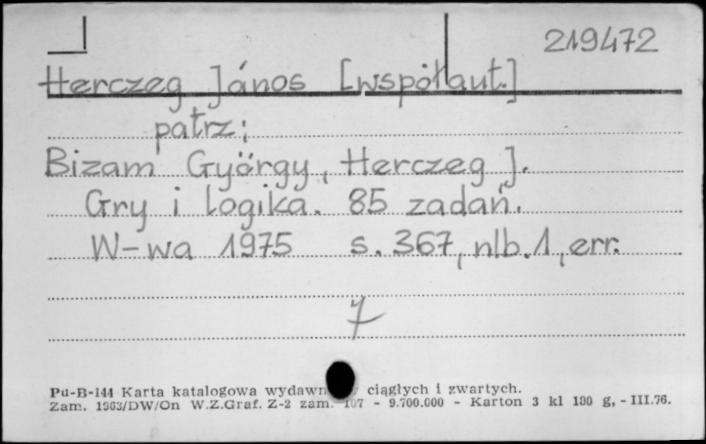 219472
Herczeg János [współaut.]
patrz:
Bizam György, Herczeg J.
Gry i logika. 85 zadań.
W-wa 1975 s. 367, nlb. 1, err.
Pu-B-144 Karta katalogowa ciągłych i zwartych.
Zam. 1963/DW/On W.Z.Graf. Z-2 zam. 107 - 9.700.000 - Karton 3 kl 180 g, - III.76.